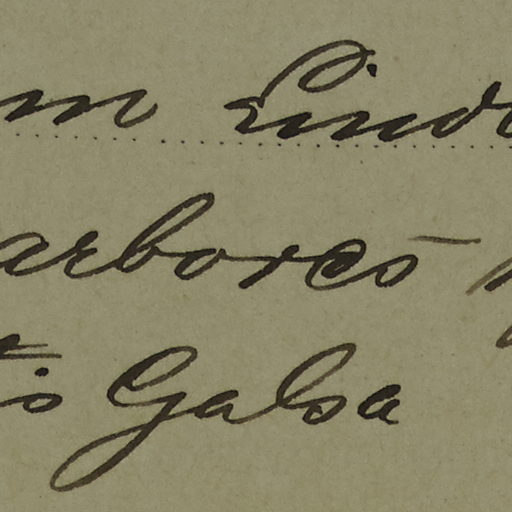 m Lind
arbores
is Galsa